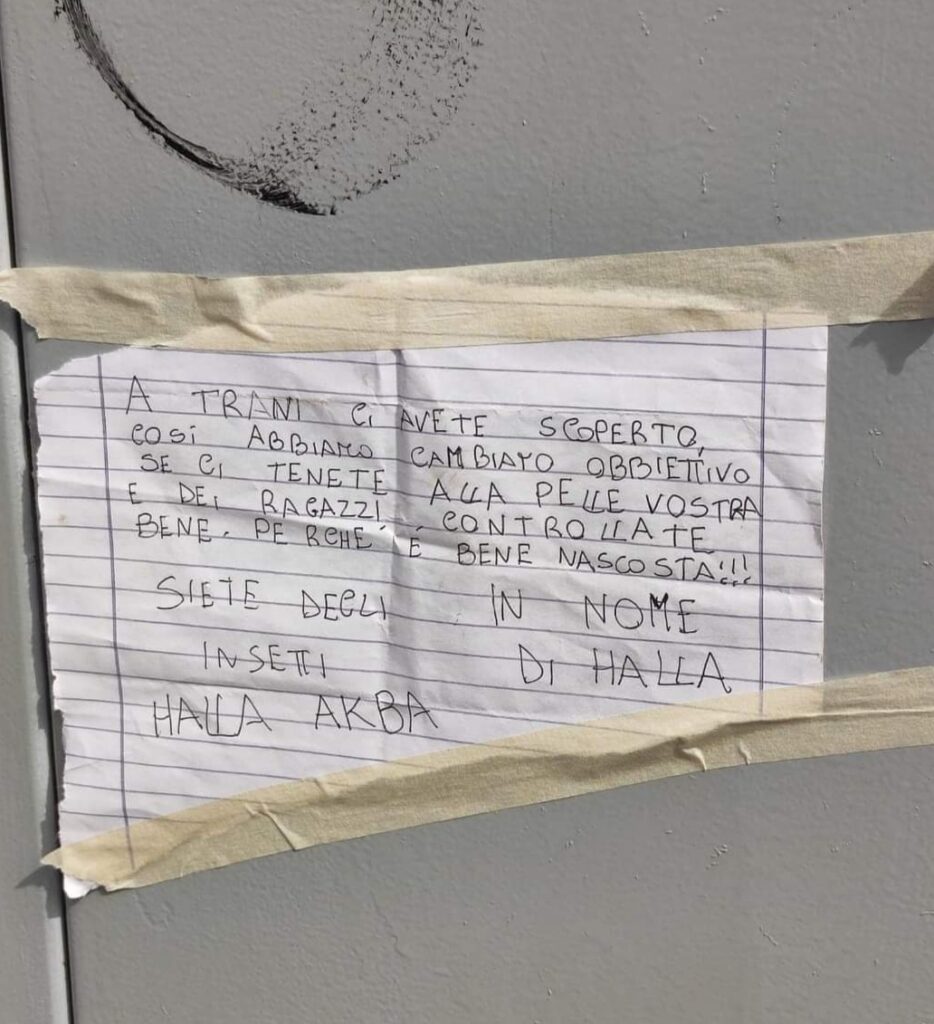 A TRANI CI AVETE SCOPERTO,
COSÌ ABBIAMO CAMBIATO OBBIETTIVO
SE CI TENETE ALLA PELLE VOSTRA
E DEI RAGAZZI, CONTROLLATE
BENE. PERCHÉ É BENE NASCOSTA!!!
SIETE DEGLI
INSETTI
HALLA AKBA
IN NOME
DI HALLA